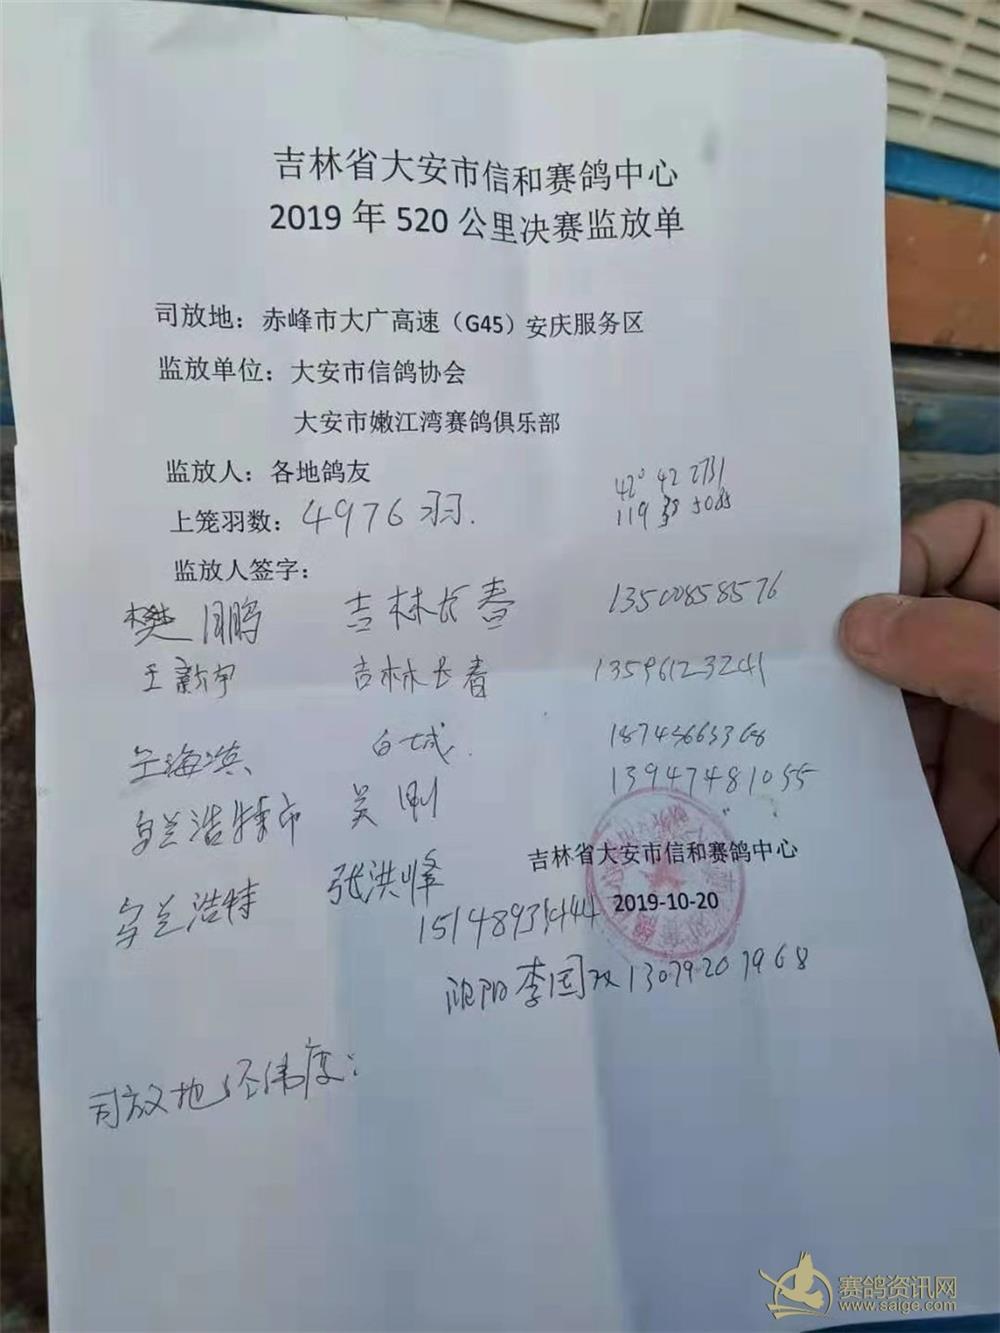 吉林省大安市信和赛鸽中心
2019 年 520 公里决赛监放单
司放地：赤峰市大广高速（G45）安庆服务区
监放单位：大安市信鸽协会
大安市嫩江湾赛鸽俱乐部
监放人：各地鸽友
上笼羽数：4976羽.
42° 42 2731
119 5085
监放人签字：
樊月鹏 吉林长春 13500858576
王新宇 吉林长春 13596123241
王海滨 白城. 18743663368
乌兰浩特市 吴刚 13947481055
吉林省大安市信和赛鸽中心
乌兰浩特 张洪峰
2019-10-20
李国双 13079207968
司放地经纬度：
赛鸽资讯网
www.saige.com